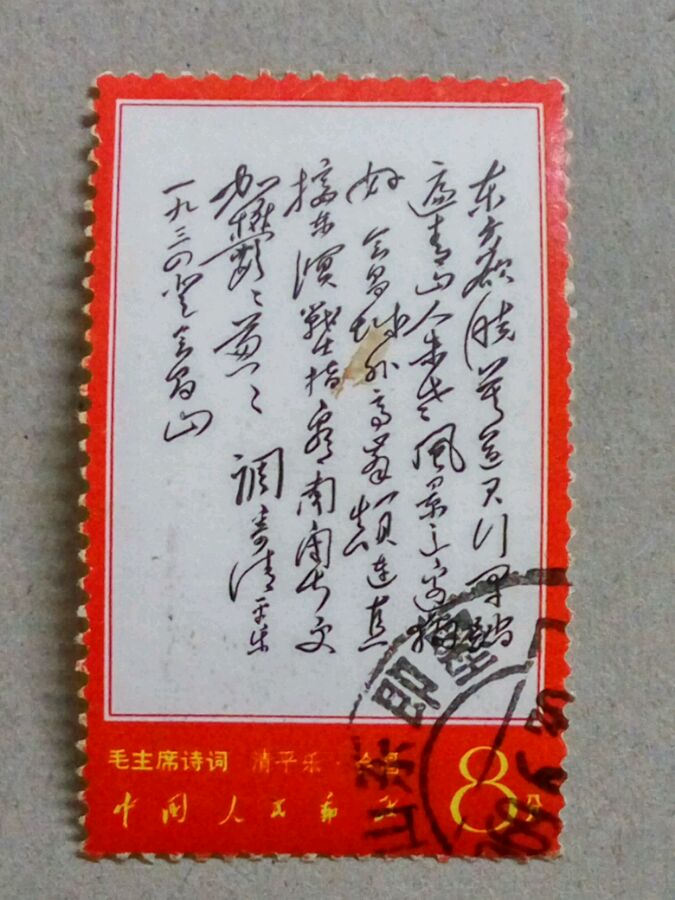 东方欲晓莫道君行早踏
遍青山人未老風景这边独
好会昌城外高峰顛连直
接东溟戰士指看南粤更
加欝〻葱〻 調寄清平乐
一九三四登会昌山
毛主席诗词 清平乐·会昌
中国人民邮政
8分
山东即墨